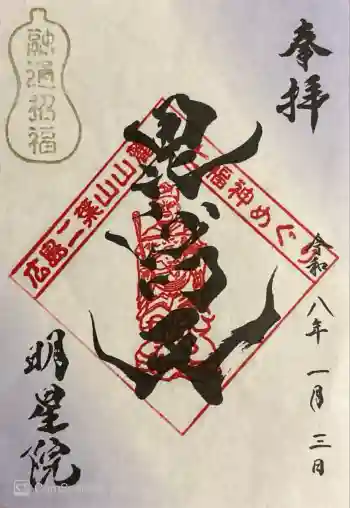 奉拝
融通招福
広島二葉山山麓七福神めぐり
毘沙門天
令和八年一月三日
明星院